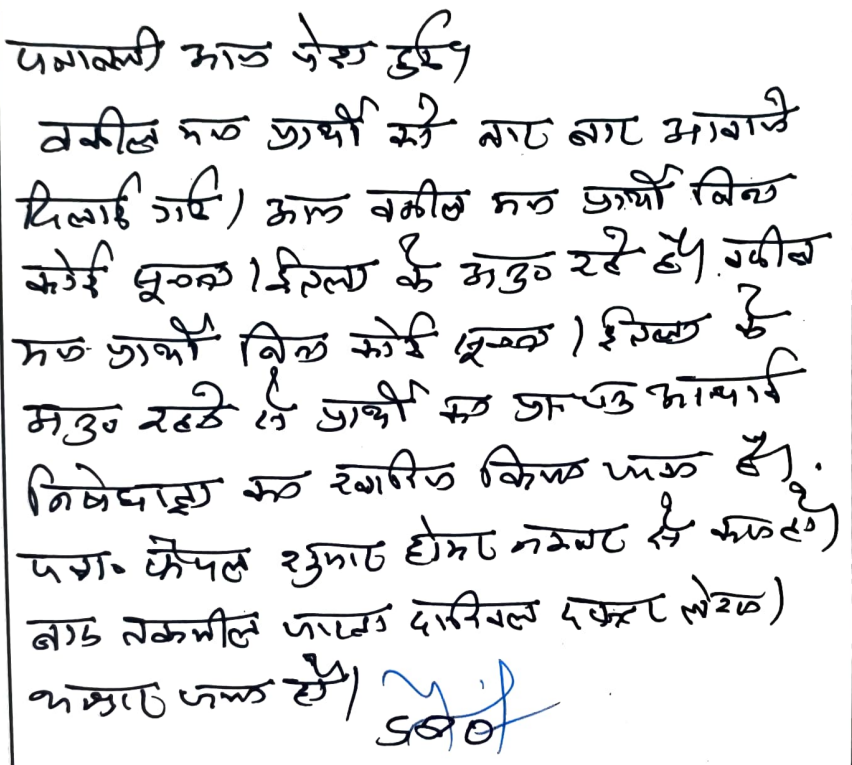 पत्रावली आज पेश हुई।
वकील मन प्रार्थी को बार बार आवाजे
दिलाई गई। आज वकील मन प्रार्थी बिना
कोई सूचना। ईतला के मउन रहे है। वकील
मन प्रार्थी बिना कोई सूचना। ईतला के
मउन रहने से प्रार्थी का प्रा पत्र
निषेधाज्ञा का खारिज किया जाता है।
पत्रा. फैसल शुमार होकर नम्बर से कम हो।
बाद तकमील जाब्ता दाखिल दफ्तर
SDO